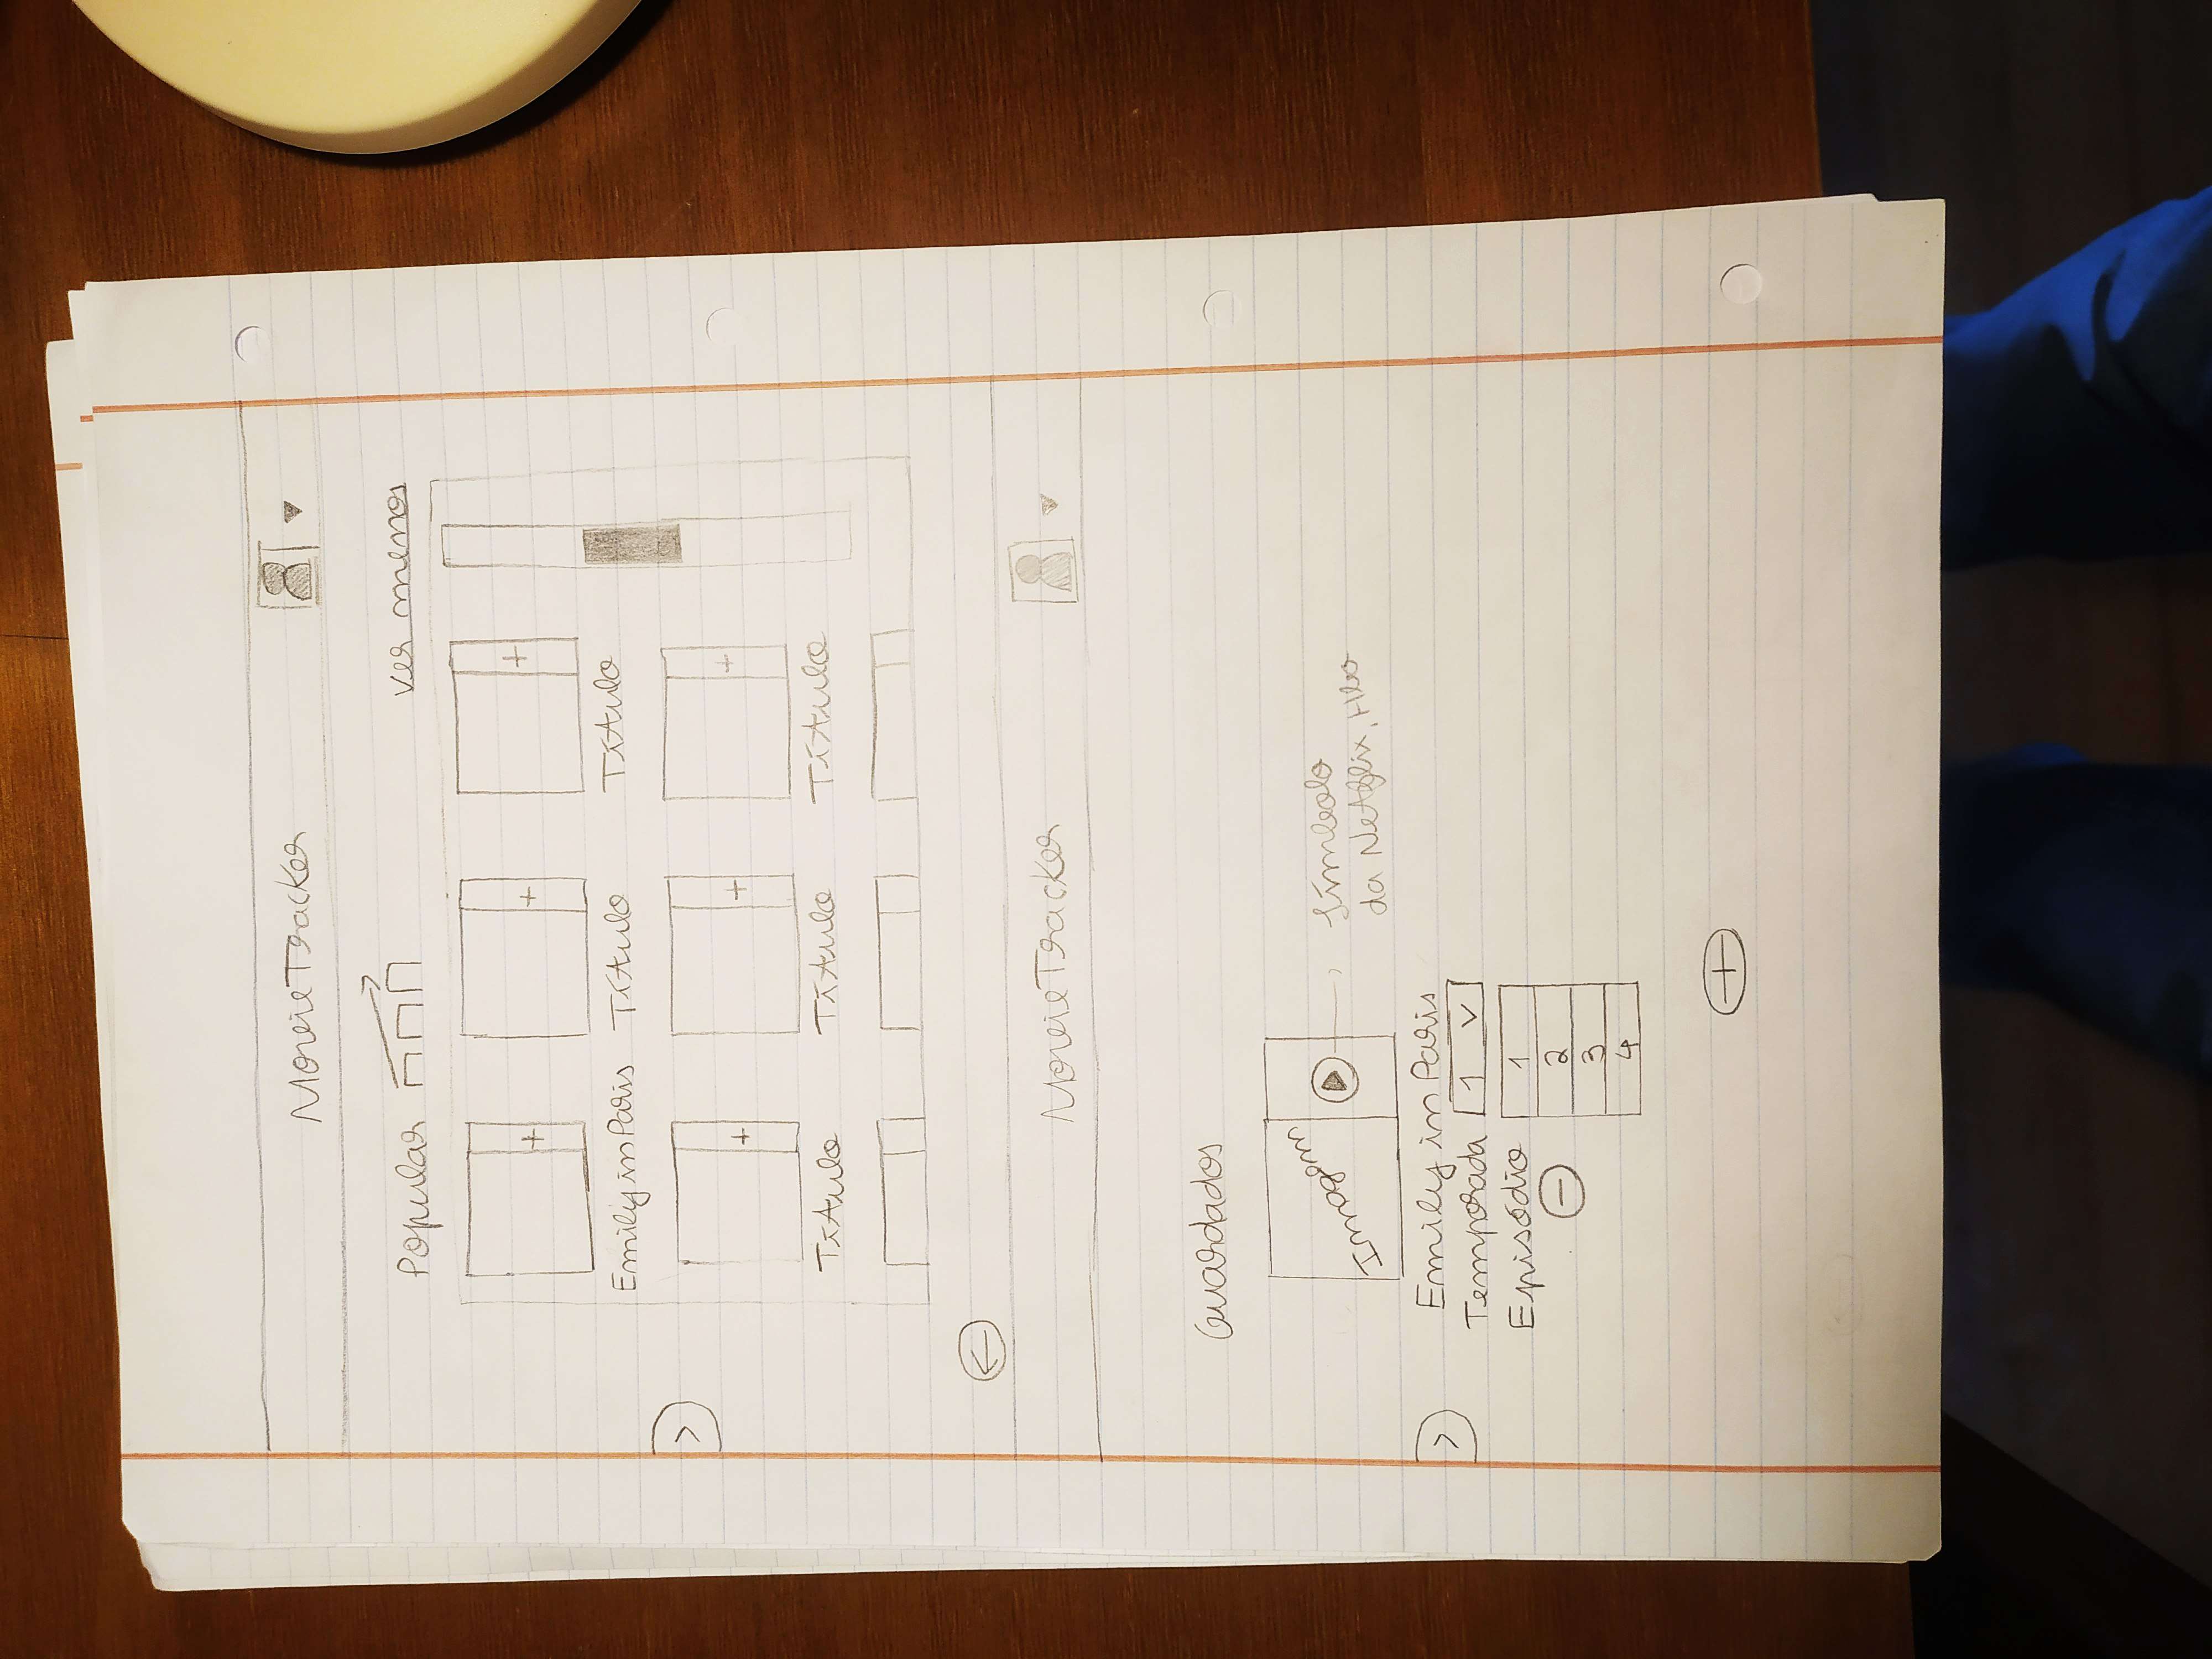 MovieTracker
Popular ver menos
+ + +
Emily in Paris Título Título
>
+ + +
Título Título Título
←
MovieTracker
Guardados
Imagem
Símbolo
da Netflix, Hbo
Emily in Paris
>
Temporada 1 v
Episódio 1
- 2
3
4
+